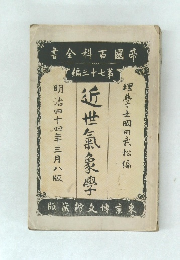 帝國百科全書
第七十二編
理學士國田武松編
近世氣象學
明治四十四年三月八版
東京博文館藏版